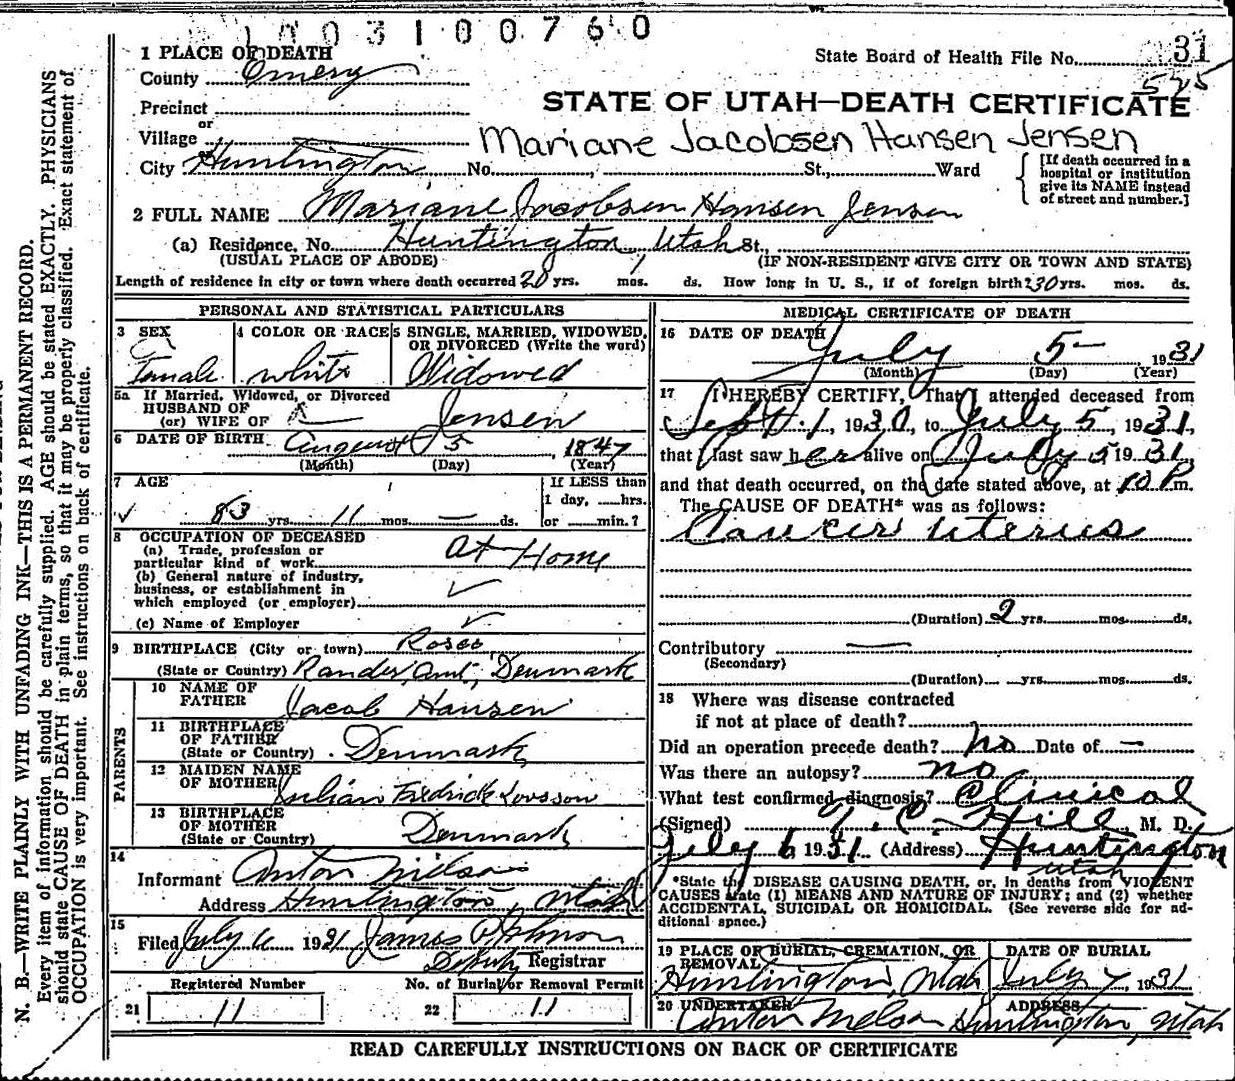 1 0 0 3 1 0 0 7 6 0
1 PLACE OF DEATH
State Board of Health File No. 31
County Emery
525
Precinct
STATE OF UTAH—DEATH CERTIFICATE
or
Village
Mariane Jacobsen Hansen Jensen
City Huntington No. St., Ward
[If death occurred in a hospital or institution give its NAME instead of street and number.]
2 FULL NAME Mariane Jacobsen Hansen Jensen
(a) Residence. No. Huntington, Utah St.,
(USUAL PLACE OF ABODE) (IF NON-RESIDENT GIVE CITY OR TOWN AND STATE)
Length of residence in city or town where death occurred 20 yrs. mos. ds. How long in U. S., if of foreign birth? 30 yrs. mos. ds.
PERSONAL AND STATISTICAL PARTICULARS
3 SEX
Female
4 COLOR OR RACE
white
5 SINGLE, MARRIED, WIDOWED, OR DIVORCED (Write the word)
Widowed
5a If Married, Widowed, or Divorced
HUSBAND OF
(or) WIFE OF Jensen
6 DATE OF BIRTH August 5, 1847
(Month) (Day) (Year)
7 AGE
83 yrs. 11 mos. — ds.
If LESS than
1 day, hrs.
or min.?
8 OCCUPATION OF DECEASED
(a) Trade, profession or
particular kind of work At Home
(b) General nature of industry,
business, or establishment in
which employed (or employer)
(c) Name of Employer
9 BIRTHPLACE (City or town)
(State or Country) Randers Amt, Denmark
PARENTS
10 NAME OF
FATHER Jacob Hansen
11 BIRTHPLACE
OF FATHER
(State or Country) Denmark
12 MAIDEN NAME
OF MOTHER
13 BIRTHPLACE
OF MOTHER
(State or Country) Denmark
14
Informant Anton Nielson
Address Huntington, Utah
15
Filed July 6 1931 James
Deputy Registrar
Registered Number
21 11
No. of Burial or Removal Permit
22 11
MEDICAL CERTIFICATE OF DEATH
16 DATE OF DEATH
July 5— 1931
(Month) (Day) (Year)
17 I HEREBY CERTIFY, That I attended deceased from
Sept. 1, 1930, to July 5, 1931,
that I last saw her alive on July 5 1931
and that death occurred, on the date stated above, at 10 P. m.
The CAUSE OF DEATH* was as follows:
Cancer Uterus
(Duration) 2 yrs. mos. ds.
Contributory —
(Secondary)
(Duration) yrs. mos. ds.
18 Where was disease contracted
if not at place of death?
Did an operation precede death? no Date of —
Was there an autopsy? no
What test confirmed diagnosis? Clinical
(Signed) T. C. Hill M. D.
July 6, 1931 (Address) Huntington
Utah
*State the DISEASE CAUSING DEATH, or, in deaths from VIOLENT
CAUSES state (1) MEANS AND NATURE OF INJURY; and (2) whether
ACCIDENTAL, SUICIDAL OR HOMICIDAL. (See reverse side for ad-
ditional space.)
19 PLACE OF BURIAL, CREMATION, OR
REMOVAL
Huntington, Utah
DATE OF BURIAL
July 7, 1931
20 UNDERTAKER
Anton Nielson
ADDRESS
Huntington, Utah
READ CAREFULLY INSTRUCTIONS ON BACK OF CERTIFICATE
N. B.—WRITE PLAINLY WITH UNFADING INK—THIS IS A PERMANENT RECORD.
Every item of information should be carefully supplied. AGE should be stated EXACTLY. PHYSICIANS
should state CAUSE OF DEATH in plain terms, so that it may be properly classified. Exact statement of
OCCUPATION is very important. See instructions on back of certificate.